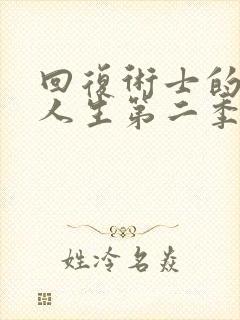 回復術士的
人生第二季
姓冷名焱